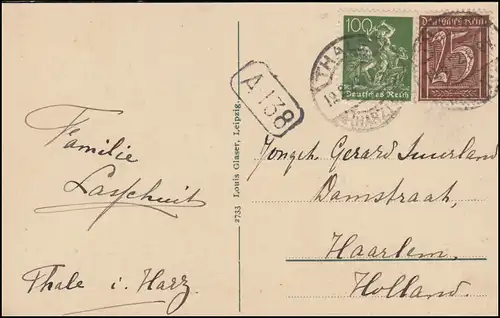 100
Deutsches Reich
Deutsches Reich
25
THALE
(HARZ)
A 138
Familie
Thale i. Harz
2733 Louis Glaser, Leipzig.
Jongeh. Gerard
Damstraat,
Haarlem.
Holland.